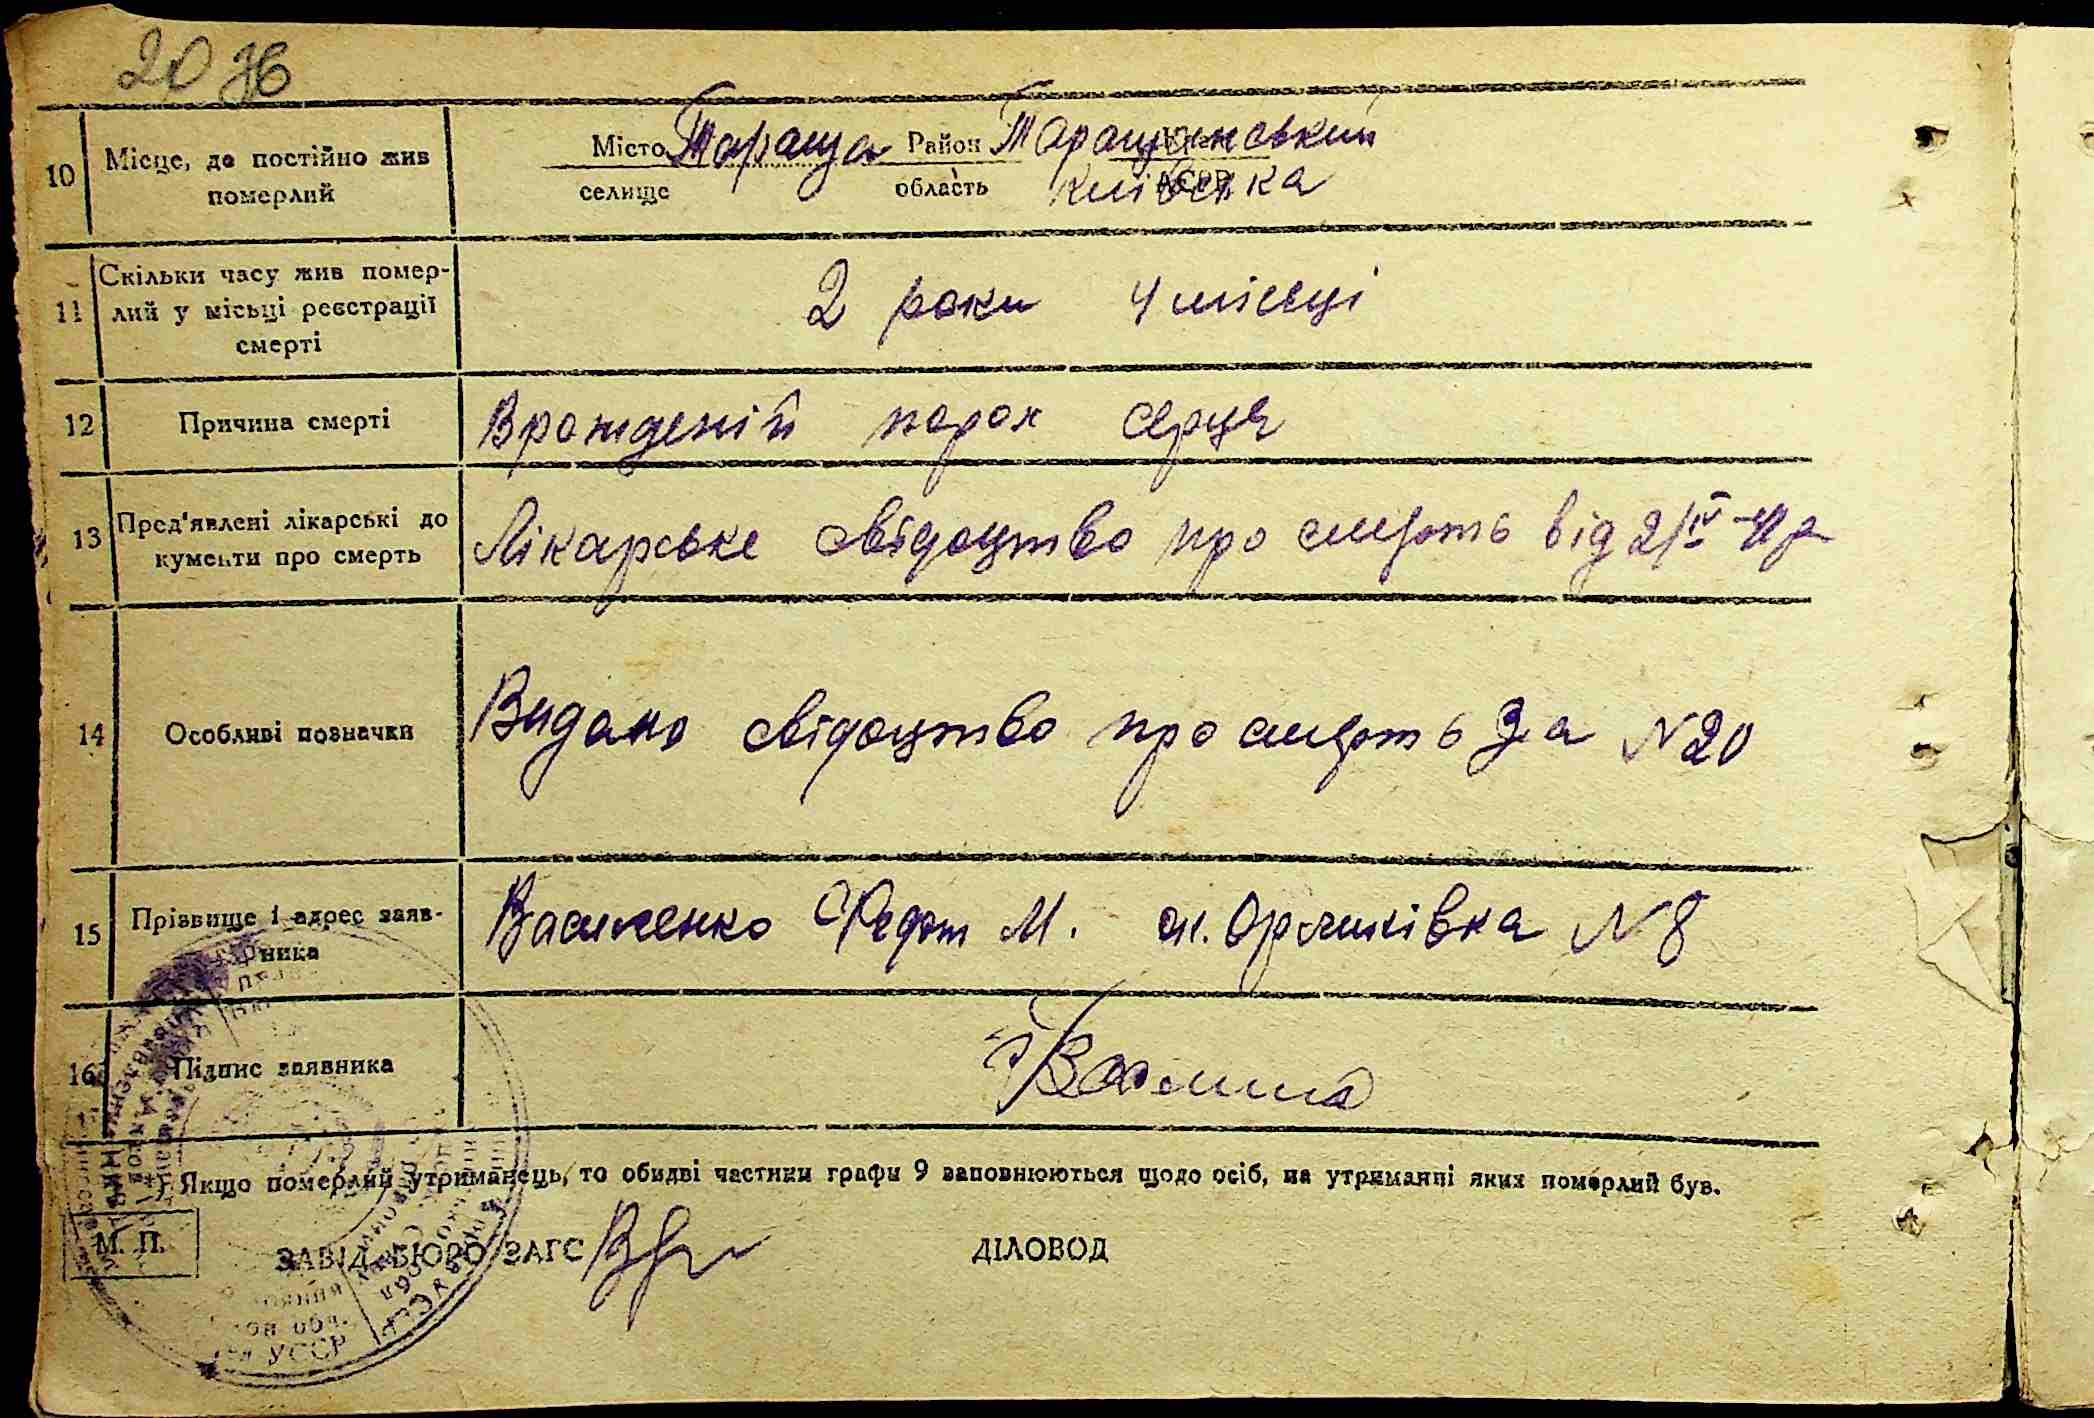 20 ж
10 Місце, де постійно жив померлий Місто Тараща Район Таращанський
селище область Київська АСРР
11 Скільки часу жив помер-
лий у місьці реєстрації
смерті 2 роки 4 місяці
12 Причина смерті Врожденій порок серця
13 Пред'явлені лікарські до
кументи про смерть Лікарське свідоцтво про смерть від 2/IV-41 р
14 Особливі позначки Видано свідоцтво про смерть за N 20
15 Прізвище і адрес заяв-
ника Василенко Федот М. N 8
16 Підпис заявника
*) Якщо померлий утриманець, то обидві частини графи 9 заповнюються щодо осіб, на утриманні яких померлий був.
М. П.
ЗАВІД. БЮРО ЗАГС ДІЛОВОД
УССР